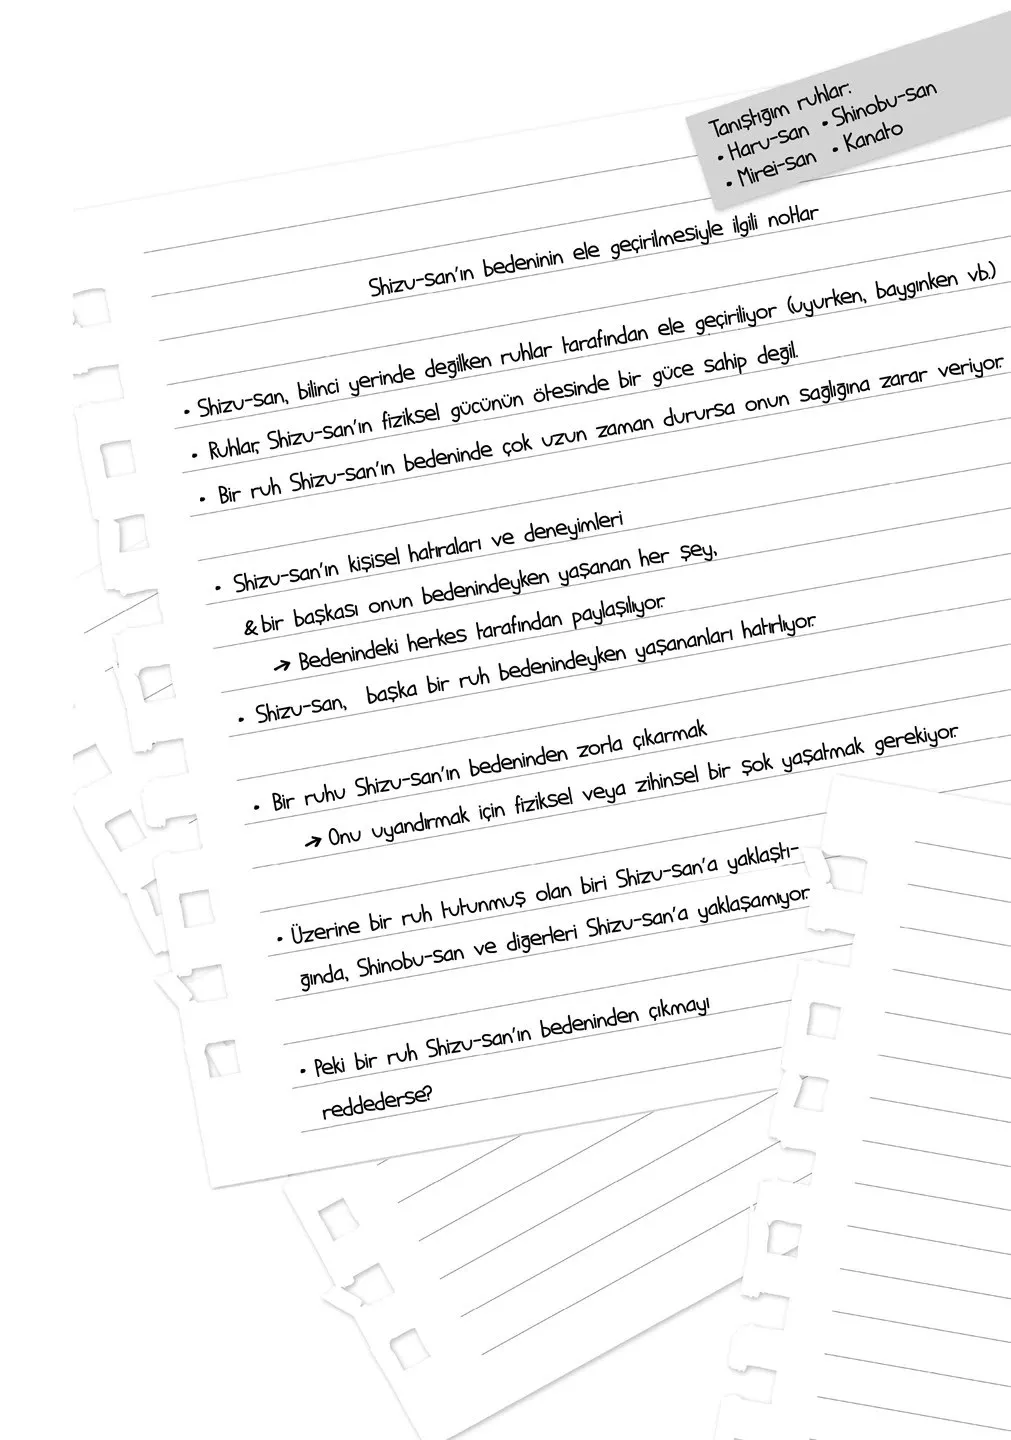 Tanıştığım ruhlar:
• Haru-san • Shinobu-san
• Mirei-san • Kanato
Shizu-san'ın bedeninin ele geçirilmesiyle ilgili notlar
• Shizu-san, bilinci yerinde değilken ruhlar tarafından ele geçiriliyor (uyurken, baygınken vb.)
• Ruhlar, Shizu-san'ın fiziksel gücünün ötesinde bir güce sahip değil.
• Bir ruh Shizu-san'ın bedeninde çok uzun zaman durursa onun sağlığına zarar veriyor.
• Shizu-san'ın kişisel hatıraları ve deneyimleri
& bir başkası onun bedenindeyken yaşanan her şey,
→ Bedenindeki herkes tarafından paylaşılıyor.
• Shizu-san, başka bir ruh bedenindeyken yaşananları hatırlıyor.
• Bir ruhu Shizu-san'ın bedeninden zorla çıkarmak
→ Onu uyandırmak için fiziksel veya zihinsel bir şok yaşatmak gerekiyor.
• Üzerine bir ruh tutunmuş olan biri Shizu-san'a yaklaştı-
ğında, Shinobu-san ve diğerleri Shizu-san'a yaklaşamıyor.
• Peki bir ruh Shizu-san'ın bedeninden çıkmayı
reddederse?